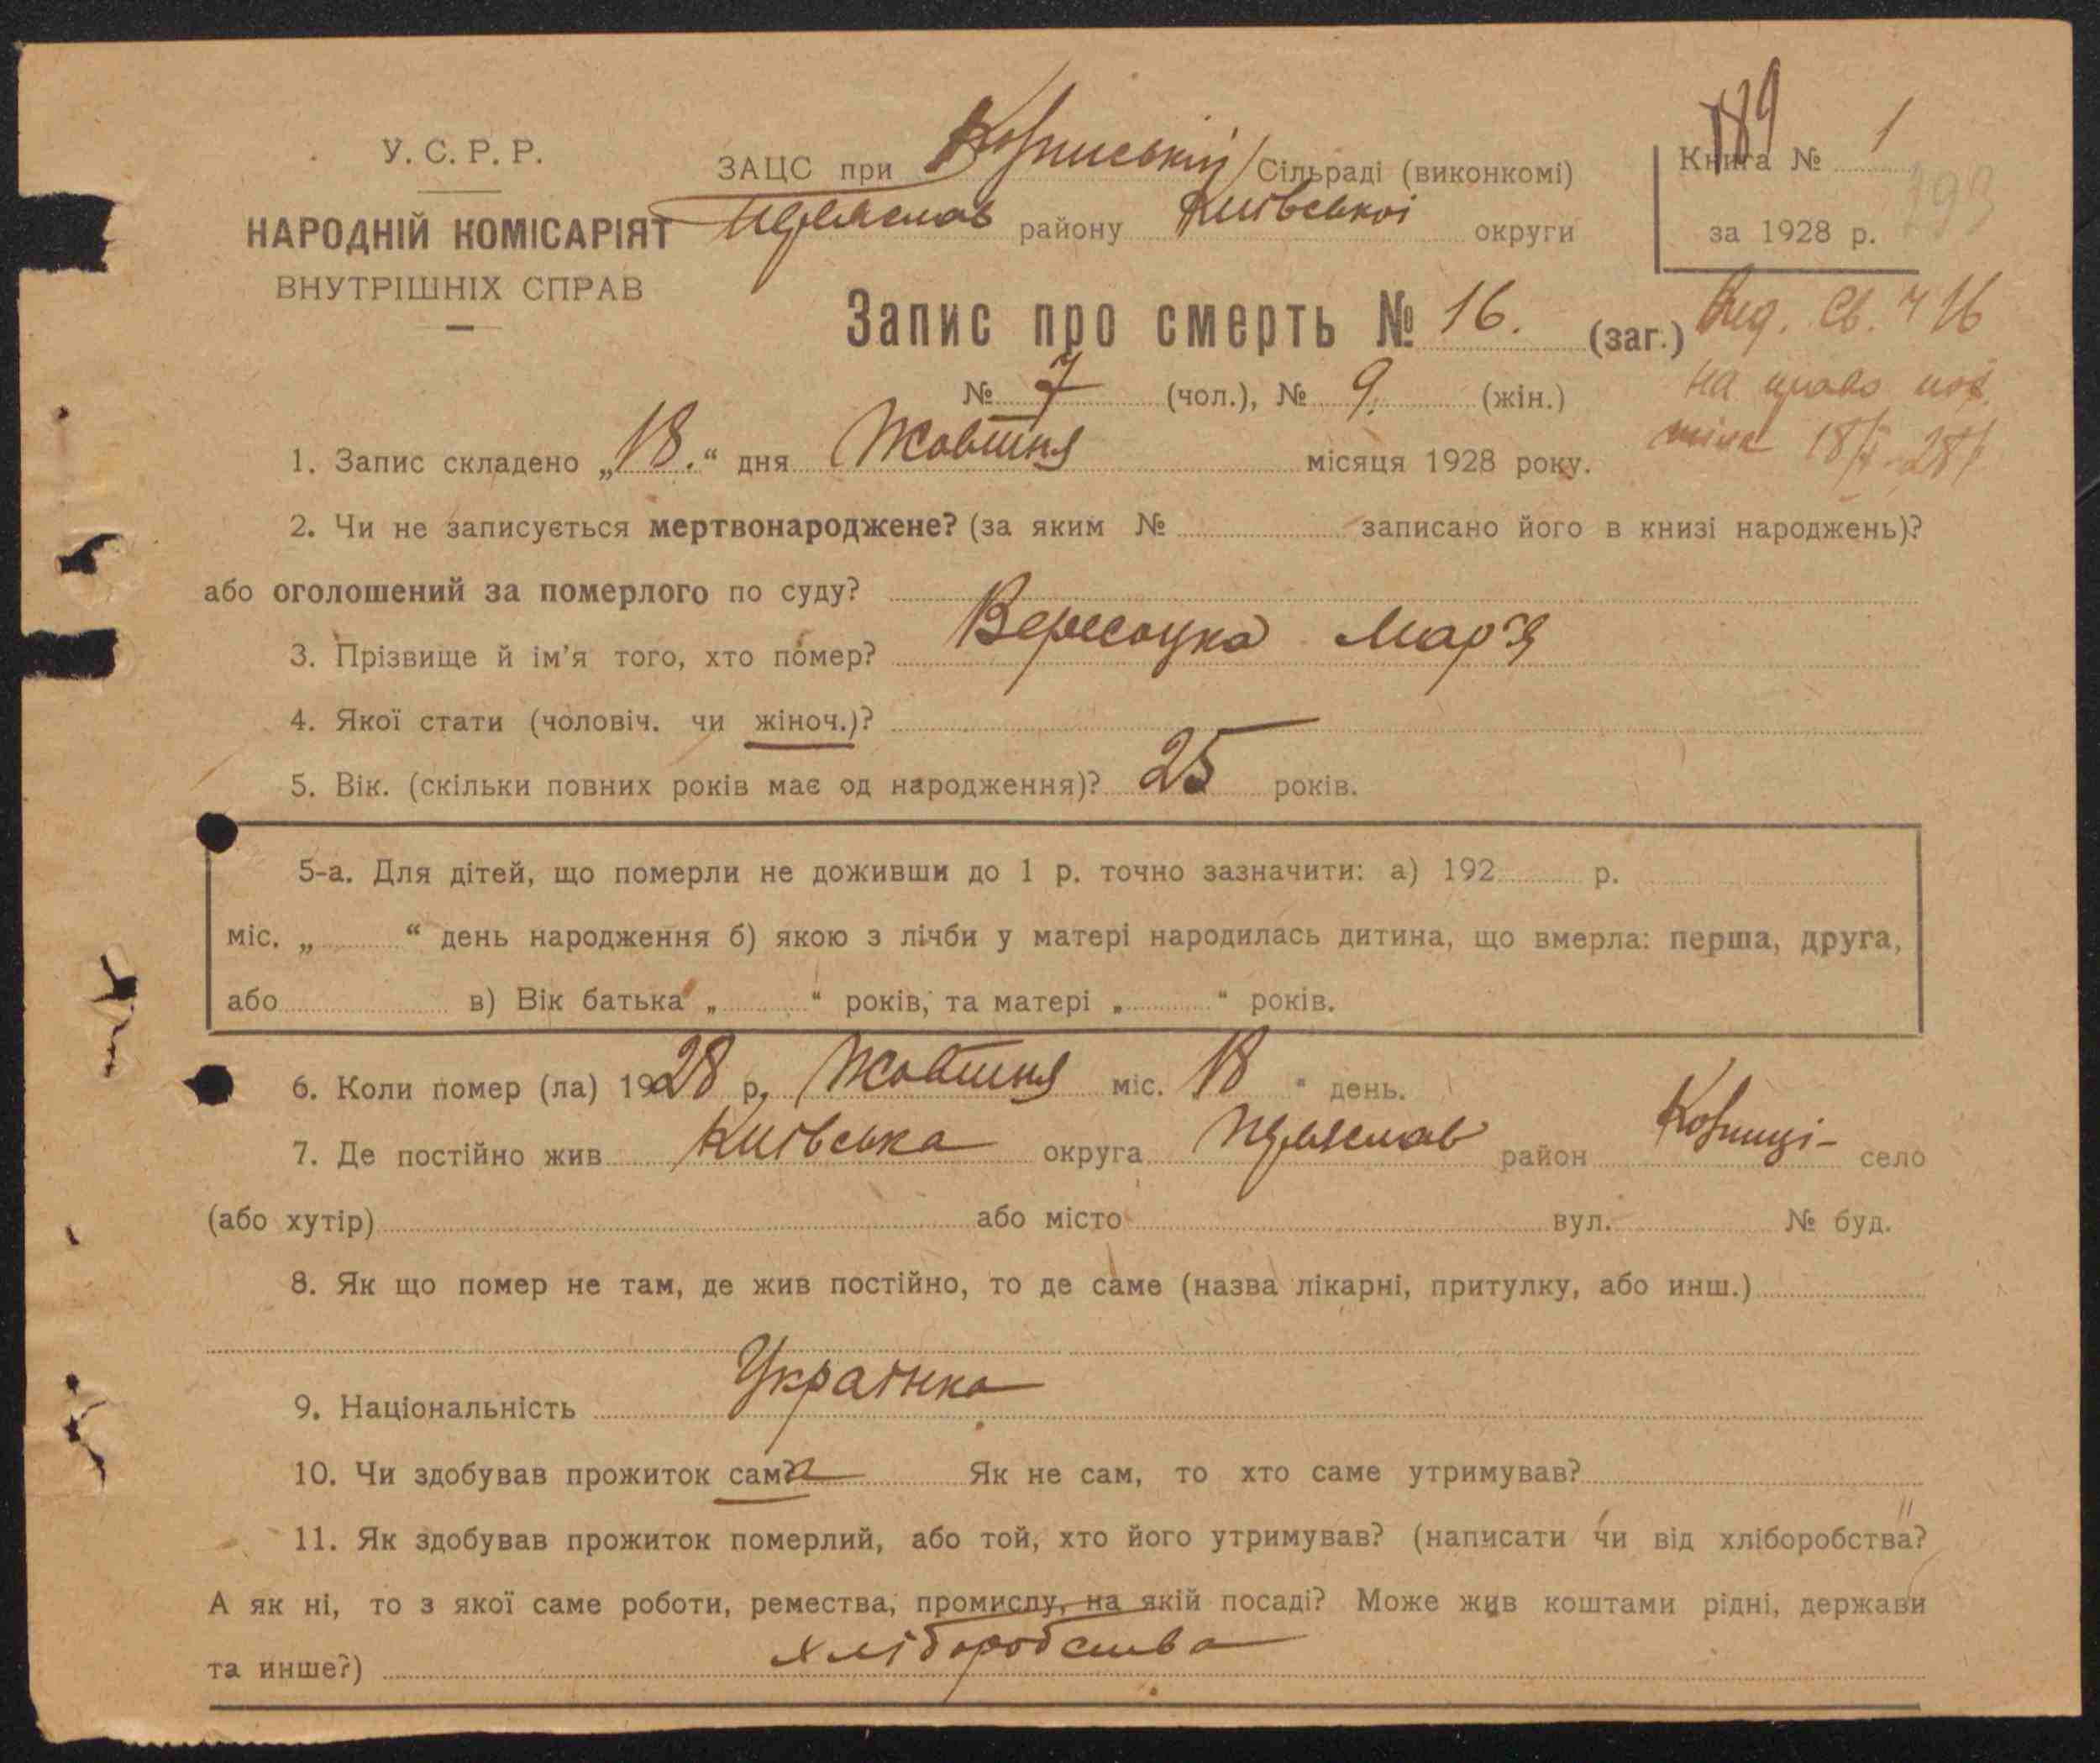 У. С. Р. Р.
НАРОДНІЙ КОМІСАРІЯТ
ВНУТРІШНІХ СПРАВ
ЗАЦС при Сільраді (виконкомі)
Переяслав району Київської округи
189
Книга № 1
193
за 1928 р.
Запис про смерть № 16. (заг.)
№ 7 (чол.), № 9. (жін.)
Вид. Св. ч 16
на право
1. Запис складено „18.“ дня Жовтня місяця 1928 року.
2. Чи не записується мертвонароджене? (за яким № записано його в книзі народжень)?
або оголошений за померлого по суду?
3. Прізвище й ім’я того, хто помер? Вересоцка Мар’я
4. Якої стати (чоловіч. чи жіноч.)?
5. Вік. (скільки повних років має од народження)? 25 років.
5-а. Для дітей, що померли не доживши до 1 р. точно зазначити: а) 192 р.
міс. „ “ день народження б) якою з лічби у матері народилась дитина, що вмерла: перша, друга,
або в) Вік батька „ “ років, та матері „ “ років.
6. Коли помер (ла) 1928 р. Жовтня міс. 18 “ день.
7. Де постійно жив Київська округа Переяслав район село
(або хутір) або місто вул. № буд.
8. Як що помер не там, де жив постійно, то де саме (назва лікарні, притулку, або инш.)
9. Національність Українка
10. Чи здобував прожиток сама Як не сам, то хто саме утримував?
11. Як здобував прожиток померлий, або той, хто його утримував? (написати чи від хліборобства?
А як ні, то з якої саме роботи, ремества, промислу, на якій посаді? Може жив коштами рідні, держави
та инше?) хліборобства